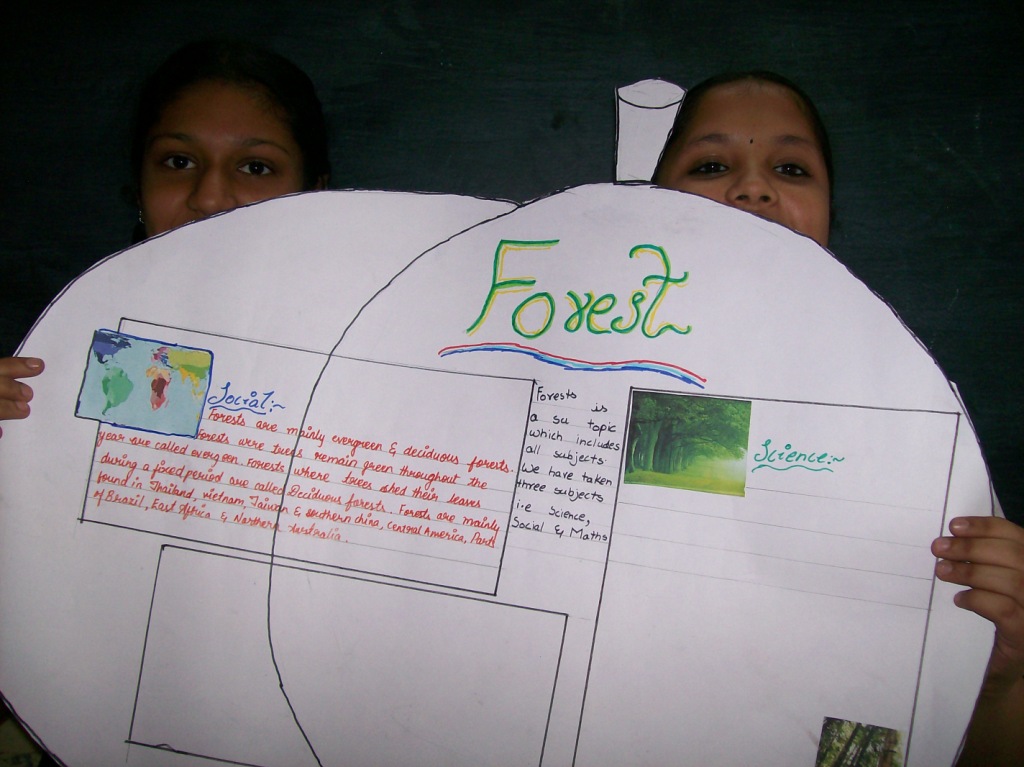 Forest
Social:~
Forests are mainly evergreen & deciduous forests.
Forests were trees remain green throughout the
year are called evergreen. Forests where trees shed their leaves
during a fixed period are called Deciduous forests. Forests are mainly
found in Thailand, vietnam, Taiwan & southern china, Central America, Parts
of Brazil, East Africa & Northern Australia.
Forests is
a su topic
which includes
all subjects.
We have taken
three subjects
i.e Science,
Social & Maths
Science:~